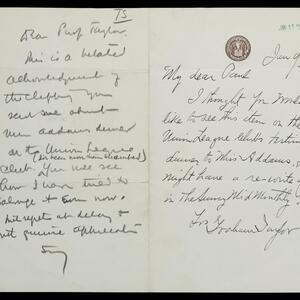 75
Dear Prof Taylor,
This is a belated
acknowledgment of
the clipping you
sent me about
Miss Addams dinner
at the Union League
Club. You will see
how I have tried to
salvage it even now.
with regrets at delay &
with genuine appreciation
Jan 9
My dear Paul
I thought you would
like to see this item on the
Union League Club's
dinner to Miss Addams,
might have a re-write
in The Survey Mid Monthly
Graham Taylor